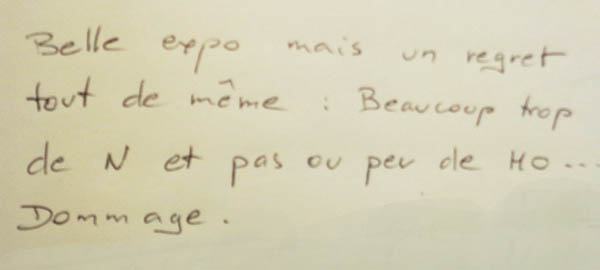 Belle expo mais un regret
tout de même : Beaucoup trop
de N et pas ou peu de HO...
Dommage.